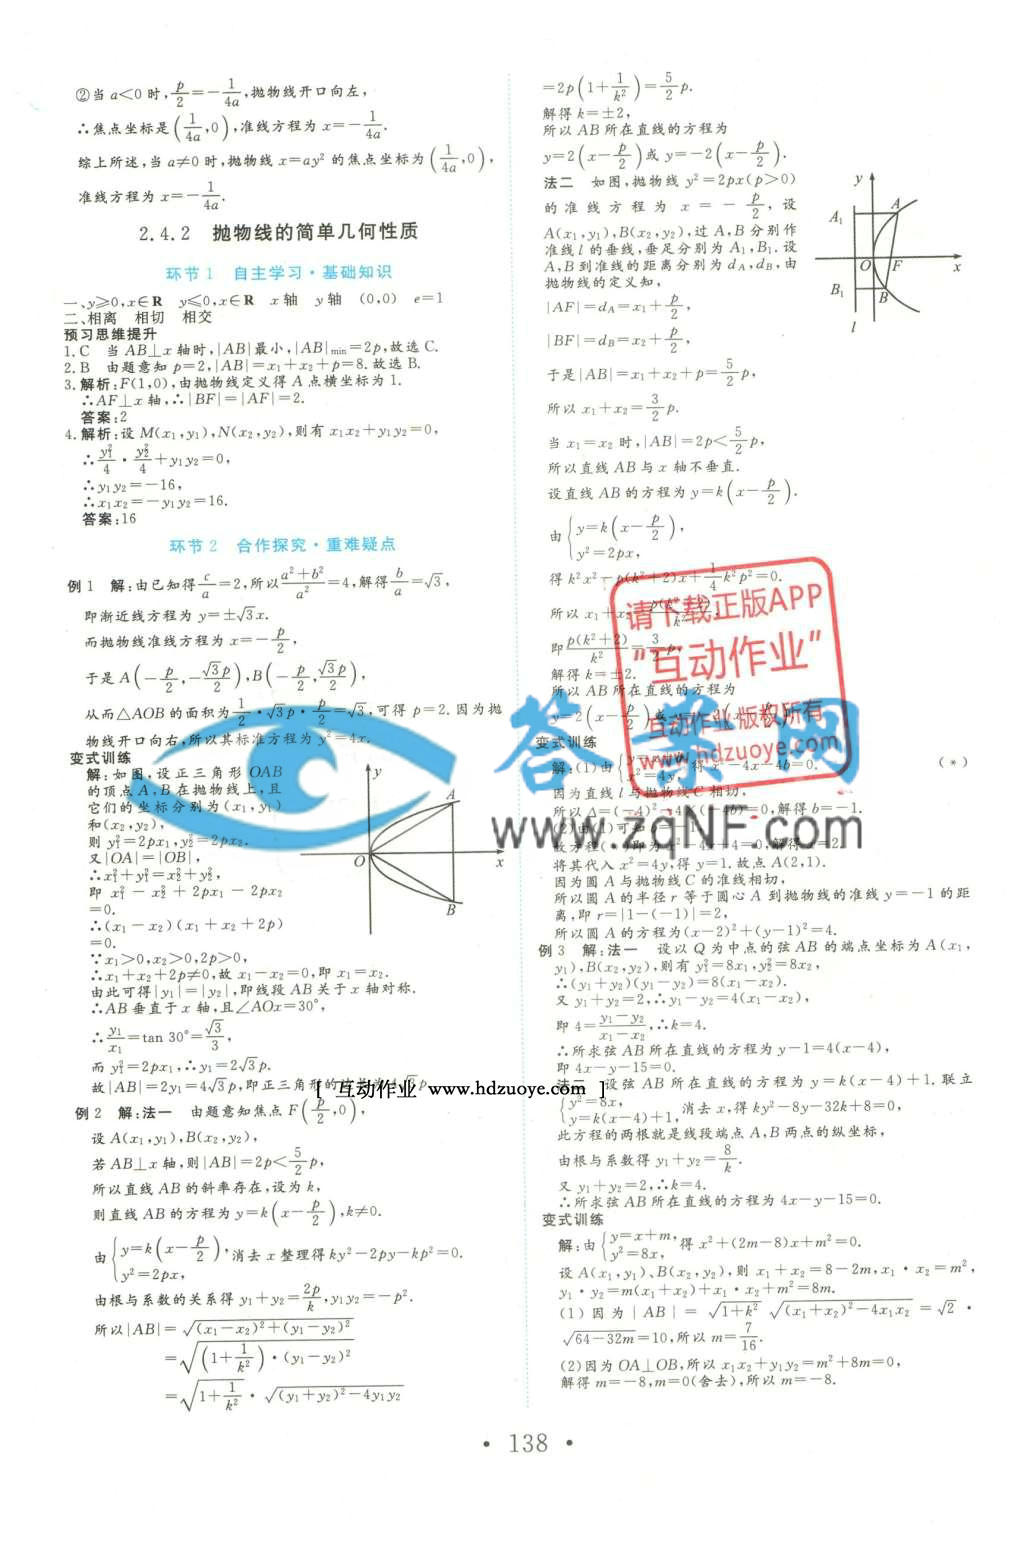 ②当 a<0 时, p/2=-1/4a,抛物线开口向左,
∴焦点坐标是(1/4a,0),准线方程为 x=-1/4a.
综上所述,当 a≠0 时,抛物线 x=ay² 的焦点坐标为(1/4a,0),
准线方程为 x=-1/4a.
2.4.2 抛物线的简单几何性质
环节1 自主学习·基础知识
一、y≥0,x∈R y≤0,x∈R x 轴 y 轴 (0,0) e=1
二、相离 相切 相交
预习思维提升
1.C 当 AB⊥x 轴时,|AB|最小,|AB|min=2p,故选C.
2.B 由题意知 p=2,|AB|=x₁+x₂+p=8.故选B.
3.解析:F(1,0),由抛物线定义得 A 点横坐标为1.
∴AF⊥x 轴,∴|BF|=|AF|=2.
答案:2
4.解析:设 M(x₁,y₁),N(x₂,y₂),则有 x₁x₂+y₁y₂=0,
∴y₁²/4·y₂²/4+y₁y₂=0,
∴y₁y₂=-16,
∴x₁x₂=-y₁y₂=16.
答案:16
环节2 合作探究·重难疑点
例1 解:由已知得c/a=2,所以(a²+b²)/a²=4,解得b/a=√3,
即渐近线方程为 y=±√3x.
而抛物线准线方程为 x=-p/2,
于是 A(-p/2,-√3p/2),B(-p/2,√3p/2),
从而△AOB的面积为1/2·√3p·p/2=√3,可得 p=2.因为抛
物线开口向右,所以其标准方程为 y²=4x.
变式训练
解:如图,设正三角形 OAB
的顶点 A,B 在抛物线上,且
它们的坐标分别为(x₁,y₁)
和(x₂,y₂),
则 y₁²=2px₁,y₂²=2px₂.
又|OA|=|OB|,
∴x₁²+y₁²=x₂²+y₂²,
即 x₁²-x₂²+2px₁-2px₂
=0.
∴(x₁-x₂)(x₁+x₂+2p)
=0.
∵x₁>0,x₂>0,2p>0,
∴x₁+x₂+2p≠0,故 x₁-x₂=0,即 x₁=x₂.
由此可得|y₁|=|y₂|,即线段 AB 关于 x 轴对称.
∴AB 垂直于 x 轴,且∠AOx=30°,
∴y₁/x₁=tan 30°=√3/3,
而 y₁²=2px₁,∴y₁=2√3p.
故|AB|=2y₁=4√3p,即正三角形的
[ 互动作业 www.hdzuoye.com ]
例2 解:法一 由题意知焦点 F(p/2,0),
设 A(x₁,y₁),B(x₂,y₂),
若 AB⊥x 轴,则|AB|=2p<5/2p,
所以直线 AB 的斜率存在,设为 k,
则直线 AB 的方程为 y=k(x-p/2),k≠0.
由{y=k(x-p/2), y²=2px, 消去 x 整理得 ky²-2py-kp²=0.
由根与系数的关系得 y₁+y₂=2p/k,y₁y₂=-p².
所以|AB|=√((x₁-x₂)²+(y₁-y₂)²)
=√((1+1/k²)·(y₁-y₂)²)
=√(1+1/k²)·√((y₁+y₂)²-4y₁y₂)
=2p(1+1/k²)=5/2p.
解得 k=±2,
所以 AB 所在直线的方程为
y=2(x-p/2)或 y=-2(x-p/2).
法二 如图,抛物线 y²=2px(p>0)
的准线方程为 x=-p/2,设
A(x₁,y₁),B(x₂,y₂),过 A,B 分别作
准线 l 的垂线,垂足分别为 A₁,B₁.设
A,B 到准线的距离分别为 dA,dB,由
抛物线的定义知,
|AF|=dA=x₁+p/2,
|BF|=dB=x₂+p/2,
于是|AB|=x₁+x₂+p=5/2p,
所以 x₁+x₂=3/2p.
当 x₁=x₂ 时,|AB|=2p<5/2p,
所以直线 AB 与 x 轴不垂直.
设直线 AB 的方程为 y=k(x-p/2).
由{y=k(x-p/2), y²=2px,
得 k²x²-p(k²+2)x+1/4k²p²=0.
所以 x₁+x₂=
即p(k²+2)/k²=3/2p.
解得 k=±2.
所以 AB 所在直线的方程为
y=2(x-p/2)或
变式训练
解:(1)由 x²=4y, 得 x²-4x-4b=0. (*)
因为直线 l 与抛物线 C 相切,
所以 Δ=(-4)²-4×(-4b)=0,解得 b=-1.
(2)由(1)可知 b=-1,
故方程(*)为 x²-4x+4=0,解得 x=2.
将其代入 x²=4y,得 y=1.故点 A(2,1).
因为圆 A 与抛物线 C 的准线相切,
所以圆 A 的半径 r 等于圆心 A 到抛物线的准线 y=-1 的距
离,即 r=|1-(-1)|=2,
所以圆 A 的方程为(x-2)²+(y-1)²=4.
例3 解:法一 设以 Q 为中点的弦 AB 的端点坐标为 A(x₁,
y₁),B(x₂,y₂),则有 y₁²=8x₁,y₂²=8x₂,
∴(y₁+y₂)(y₁-y₂)=8(x₁-x₂).
又 y₁+y₂=2,∴y₁-y₂=4(x₁-x₂),
即 4=(y₁-y₂)/(x₁-x₂),∴k=4.
∴所求弦 AB 所在直线的方程为 y-1=4(x-4),
即 4x-y-15=0.
法二 设弦 AB 所在直线的方程为 y=k(x-4)+1.联立
{y²=8x, y=k(x-4)+1, 消去 x,得 ky²-8y-32k+8=0,
此方程的两根就是线段端点 A,B 两点的纵坐标,
由根与系数得 y₁+y₂=8/k.
又 y₁+y₂=2,∴k=4.
∴所求弦 AB 所在直线的方程为 4x-y-15=0.
变式训练
解:由{y=x+m, y²=8x, 得 x²+(2m-8)x+m²=0.
设 A(x₁,y₁)、B(x₂,y₂),则 x₁+x₂=8-2m,x₁·x₂=m²,
y₁·y₂=m(x₁+x₂)+x₁·x₂+m²=8m.
(1)因为|AB|=√(1+k²) √((x₁+x₂)²-4x₁x₂)=√2·
√(64-32m)=10,所以 m=7/16.
(2)因为 OA⊥OB,所以 x₁x₂+y₁y₂=m²+8m=0,
解得 m=-8,m=0(舍去),所以 m=-8.
y
A
O
x
B
y
A₁
A
O
F
x
B₁
B
l
请下载正版APP
"互动作业"
互动作业 版权所有
www.hdzuoye.com
答案网
www.zqNF.com
· 138 ·